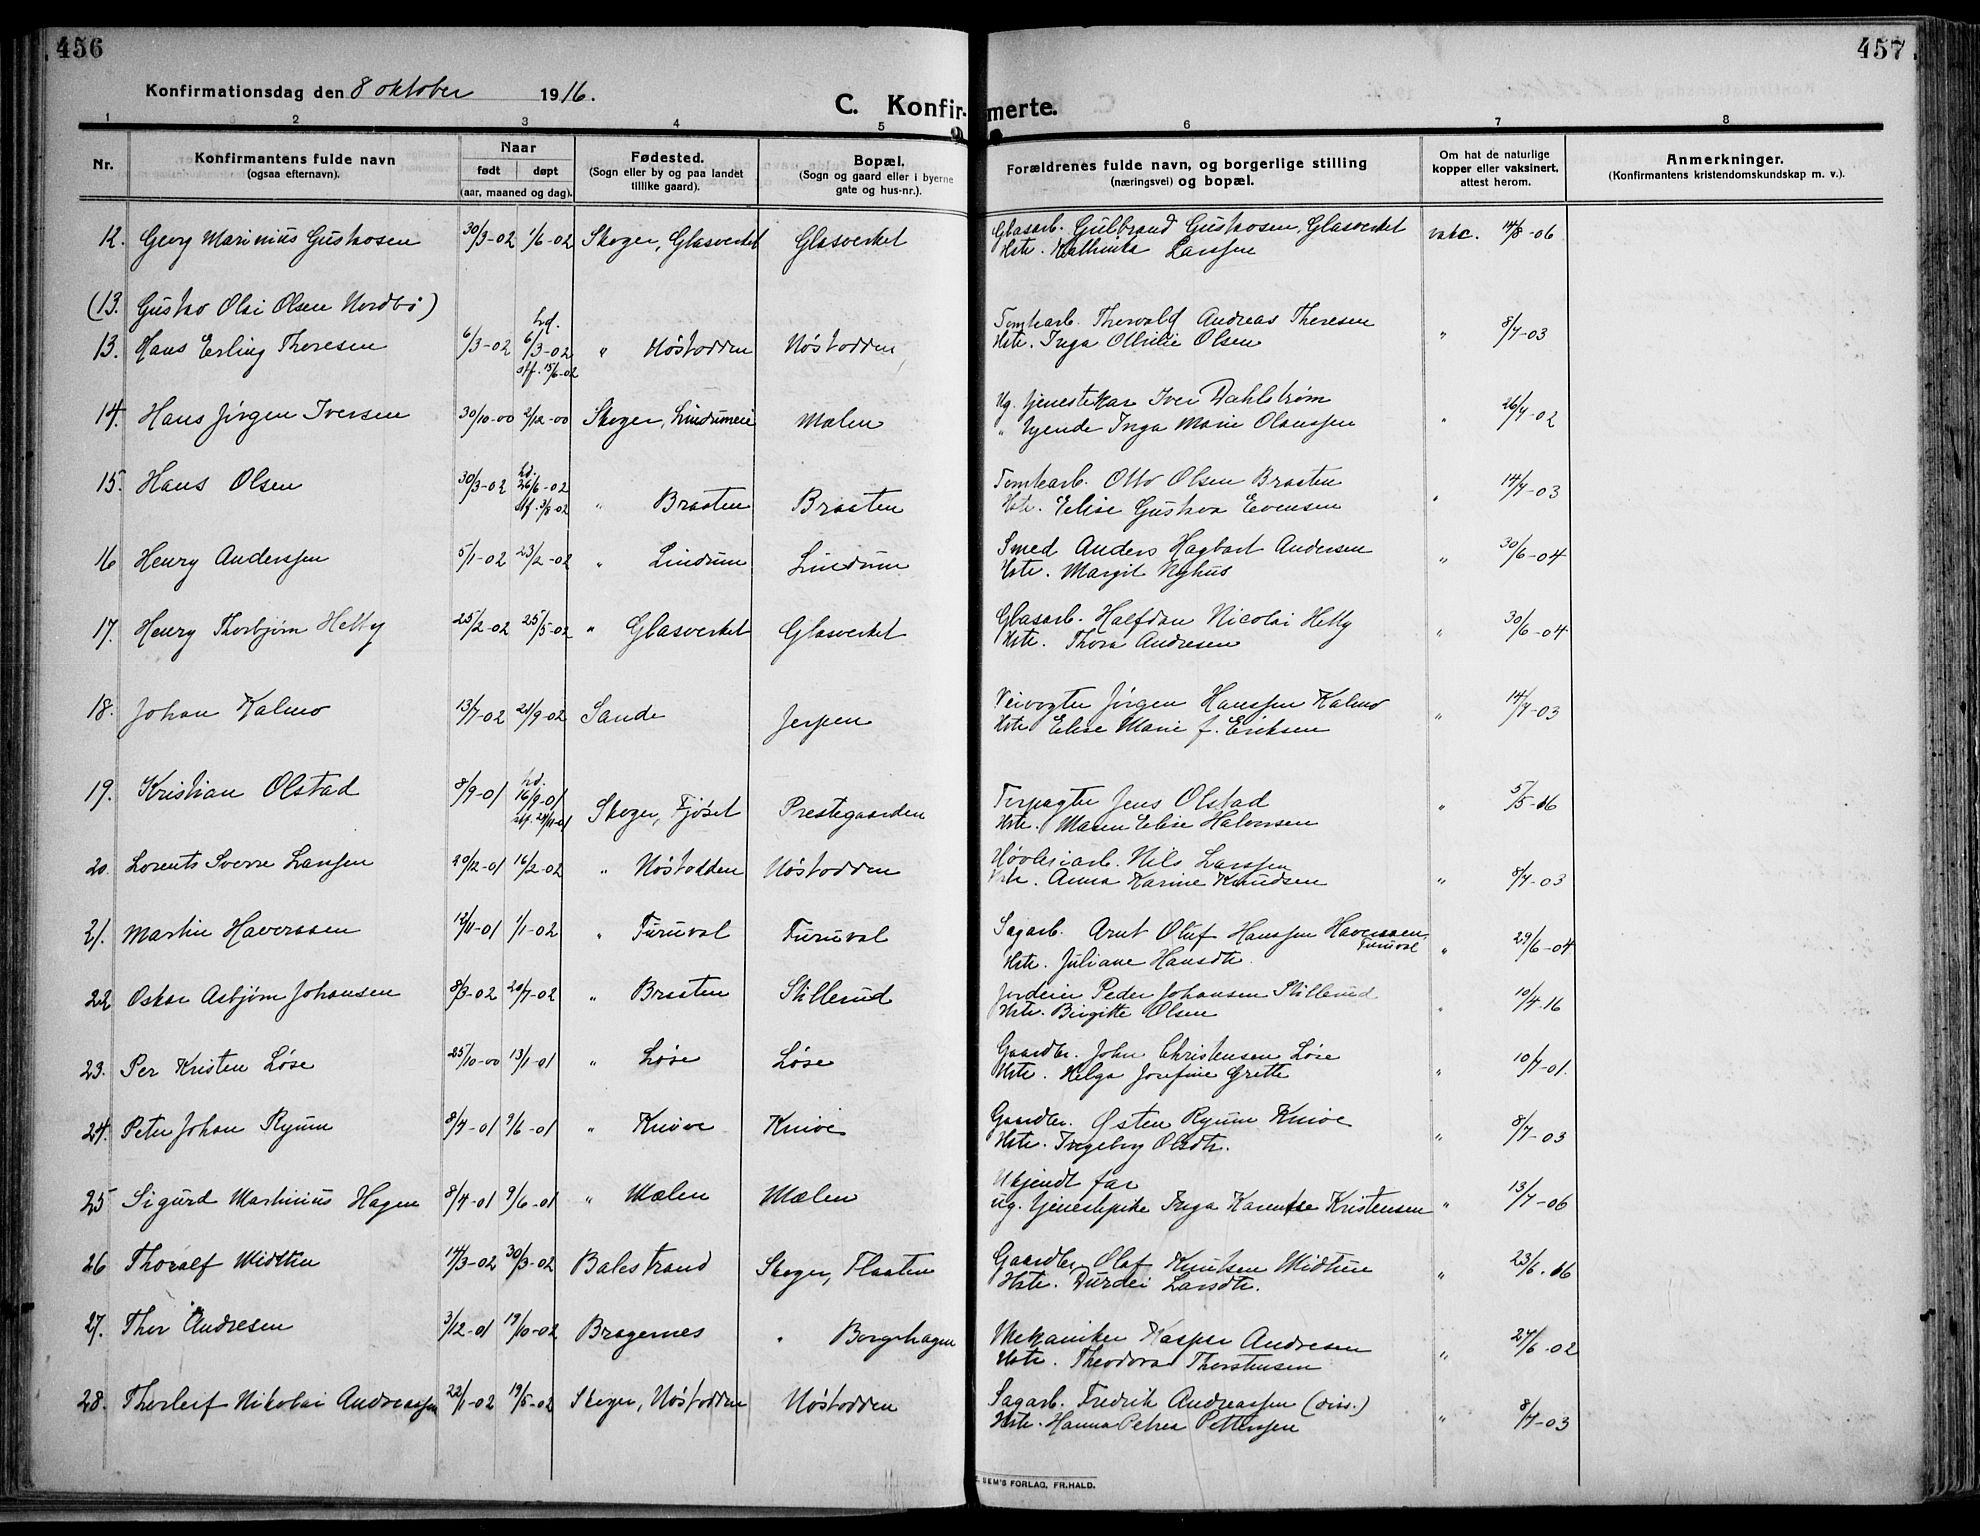 456
457
Konfirmationsdag den 8 oktober 1916.
C. Konfirmerte.
1 2 3 4 5 6 7 8
Nr. Konfirmantens fulde navn (ogsaa efternavn). Naar født døpt (aar, maaned og dag). Fødested. (Sogn eller by og paa landet tillike gaard). Bopæl. (Sogn og gaard eller i byerne gate og hus-nr.). Forældrenes fulde navn, og borgerlige stilling (næringsvei) og bopæl. Om hat de naturlige kopper eller vaksinert, attest herom. Anmerkninger. (Konfirmantens kristendomskundskap m. v.).
12. Georg Marinius Gustavsen 30/3-02 1/6-02 Skoger, Glasverket Glasverket Glasarb. Gulbrand Gustavsen, Glasverket vakc. 14/8-06
Hstr. Kathinka Larssen
(13. Gustav Olai Olsen Nordbø)
13. Hans Erling Thoresen 6/3-02 hd. 6/3-02 stf. 15/6-02 " Nøstodden Nøstodden Tomtearb. Thorvald Andreas Thoresen " 8/7-03
Hstr. Inga Othilie Olsen
14. Hans Jørgen Iversen 30/10-00 2/12-00 Skoger, Lindumeie Mælen Ug. tjenestekar Iver Dahlstrøm " 26/7-02
" tjende Inga Marie Olaussen
15. Hans Olsen 30/3-02 hd. 26/6-02 stf. 3/8-02 " Braaten Braaten Tomtearb. Otto Olsen Braaten " 14/7-03
Hstr. Elise Gustava Evensen
16 Henry Anderssen 5/1-02 23/2-02 " Lindum Lindum Smed Anders Hagbart Andersen " 30/6-04
Hstr. Margit Nyhus
17. Henry Thorbjørn Hetty 25/2-02 25/5-02 " Glasverket Glasverket Glasarb. Halfdan Nicolai Hetty " 30/6-04
Hstr. Thora Andresen
18. Johan Kalmo 13/7-02 21/9-02 Sande Jerpen Veivogter Jørgen Hanssen Kalmo " 14/7-03
Hstr. Elise Marie f. Eriksen
19. Kristian Olstad 8/9-01 hd. 16/9-01 stf. 24/11-01 Skoger, Fjøset Prestegaarden Forpagter Jens Olstad " 5/5-16
Hstr. Maren Elise Halvorsen
20. Lorents Sverre Larssen 20/12-01 16/2-02 " Nøstodden Nøstodden Høvleriarb. Nils Larssen " 8/7-03
Hstr. Anna Karine Knudsen
21. Martin Haverssen 12/11-01 1/1-02 " Furuval Furuval Sagarb. Arnt Oluf Hanssen Haverssen Furuval " 29/6-04
Hstr. Juliane Hansdtr.
22 Oskar Asbjørn Johansen 8/3-02 20/7-02 " Braaten Stillerud Jordeier Peder Johansen Stillerud " 10/4-16
Hstr. Birgitte Olsen
23. Per Kristen Løse 25/10-00 13/1-01 " Løse Løse Gaardbr. John Christensen Løse " 10/7-01.
Hstr. Helga Josefine Grette
24. Peter Johan Ryum 8/4-01 9/6-01 " Knive Knive Gaardbr. Østen Ryum Knive " 8/7-03
Hstr. Ingeborg Olsdtr.
25 Sigurd Martinius Hagen 8/4-01 9/6-01 " Mælen Mælen Ukjendt far
ug. tjenestepike Inga Karentse Kristensen " 13/7-06
26 Thoralf Midttun 14/3-02 30/3-02 Balestrand Skoger, Flaaten Gaardbr. Olaf Knutsen Midtun " 23/6-16
Hstr. Durdei Larsdtr.
27. Thor Andresen 3/12-01 19/10-02 Bragernes " Borgehagen Mekaniker Kasper Andresen " 27/6-02
Hstr. Theodora Thorstensen
28. Thorleif Nikolai Andreassen 22/1-02 19/5-02 Skoger, Nøstodden Nøstodden Sagarb. Fredrik Andreassen (diss.) " 8/7-03
Hstr. Hanna Petrea Pettersen
SEM'S FORLAG, FR.HALD.